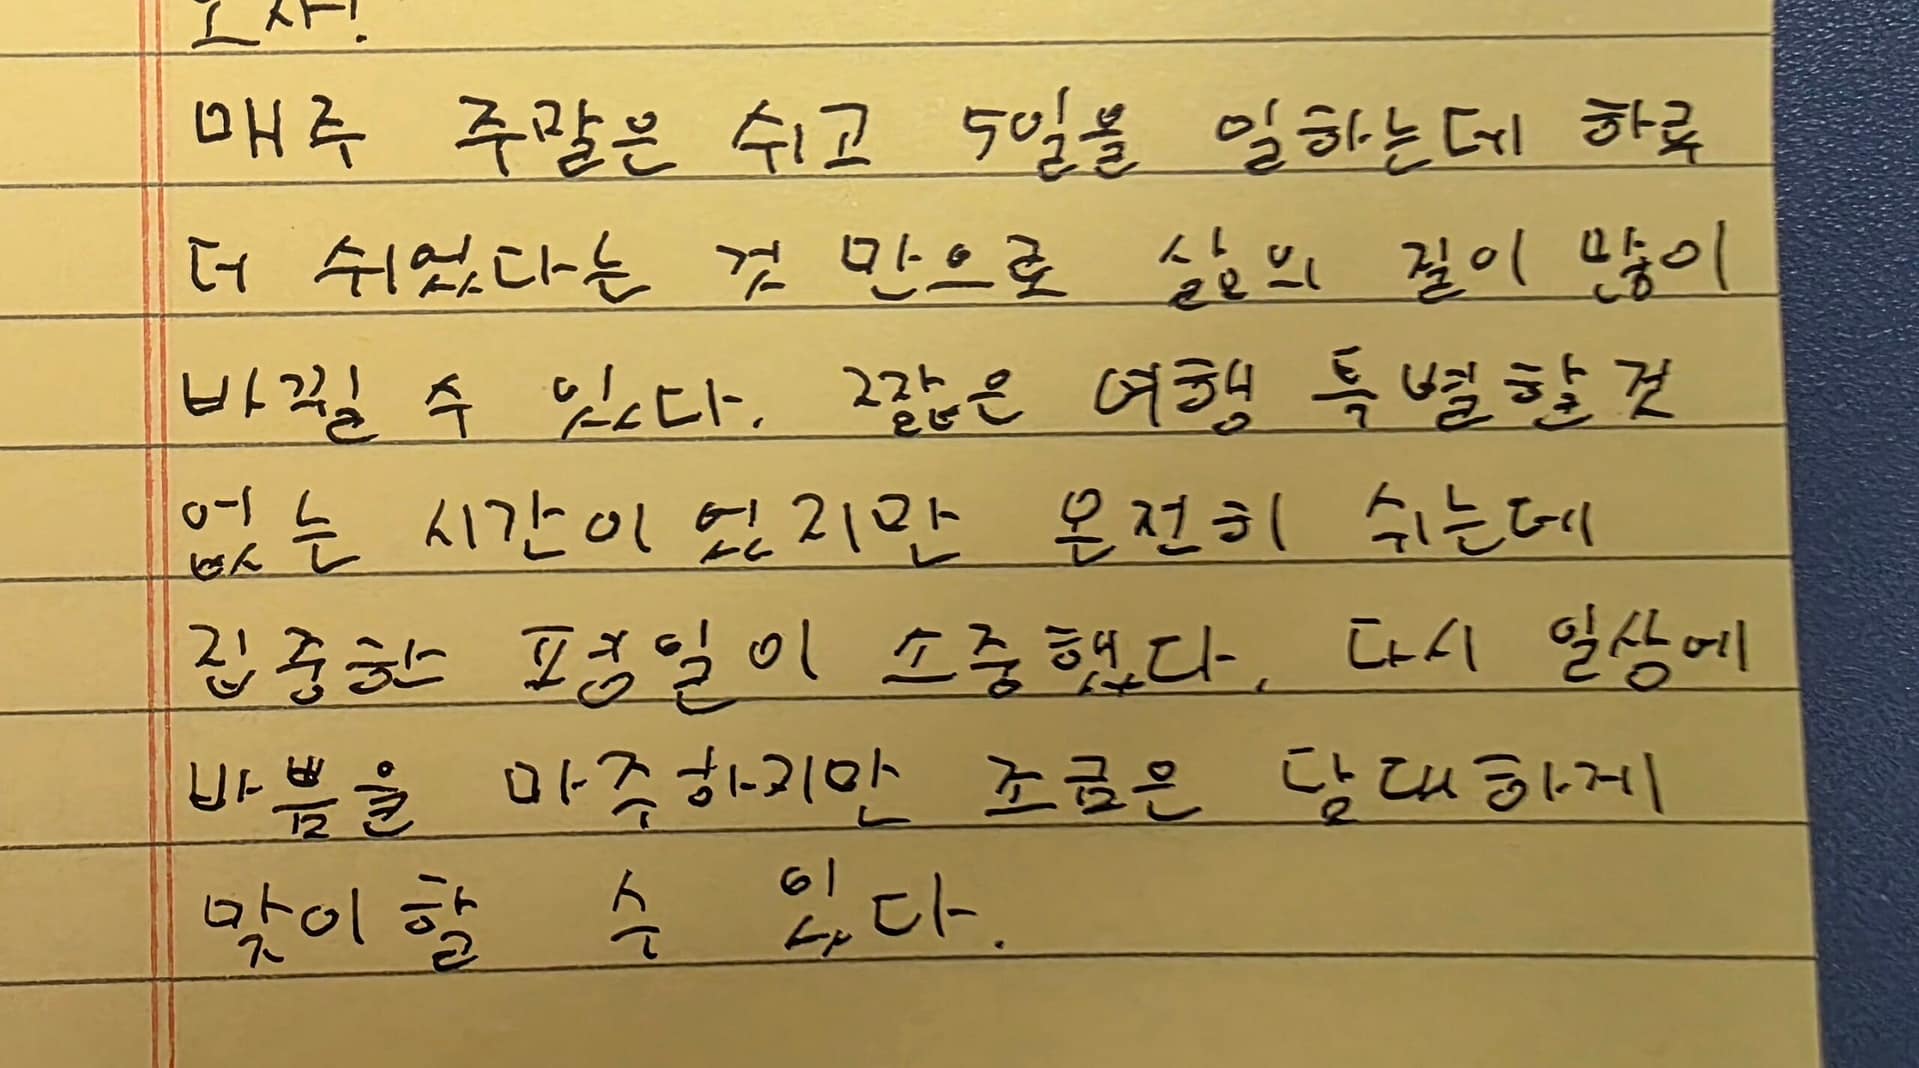 매주 주말은 쉬고 5일을 일하는데 하루
더 쉬었다는 것 만으로 삶의 질이 많이
바뀔 수 있다. 짧은 여행 특별할 것
없는 시간이었지만 온전히 쉬는데
집중한 평일이 소중했다. 다시 일상에
바쁨을 마주하지만 조금은 담대하게
맞이할 수 있다.